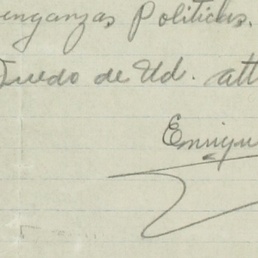 enganzas Politicas.
Quedo de Ud. att
Enriqu